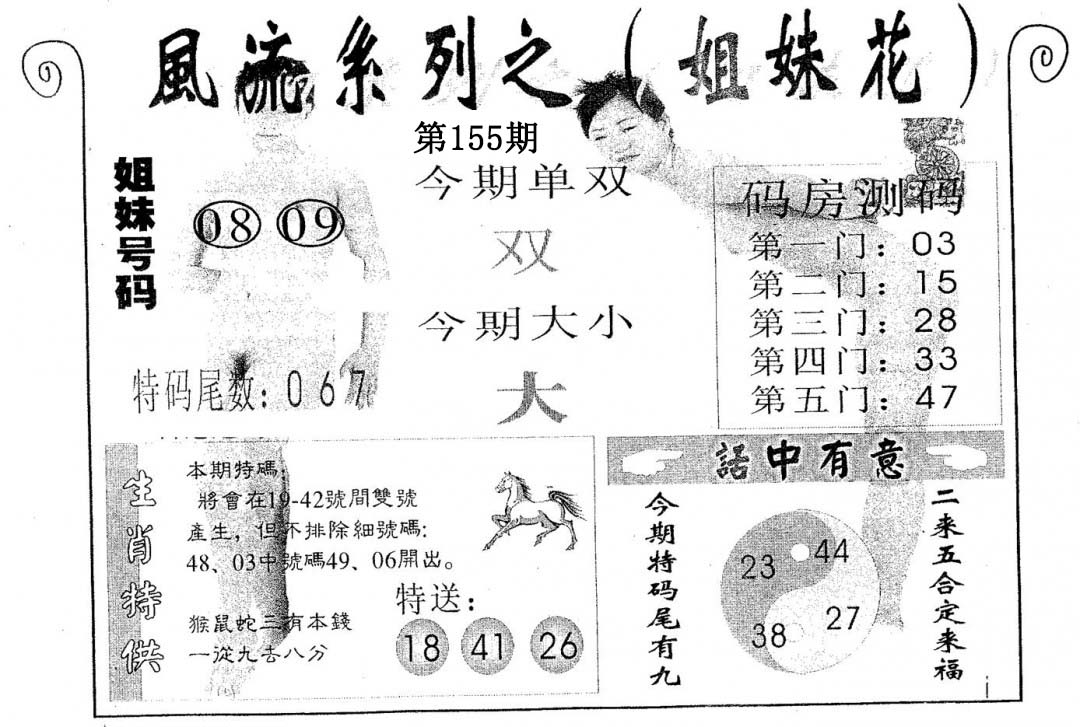 風流系列之（姐妹花）
第155期
姐妹号码
08 09
特码尾数：067
今期单双
双
今期大小
大
码房测码
第一门：03
第二门：15
第三门：28
第四门：33
第五门：47
生肖特供
本期特碼：
將會在19-42號間雙號
產生，但不排除細號碼:
48、03中號碼49、06開出。
猴鼠蛇三有本錢
一從九去八分
特送：
18 41 26
話中有意
今期特码尾有九
23 44
38 27
二来五合定来福